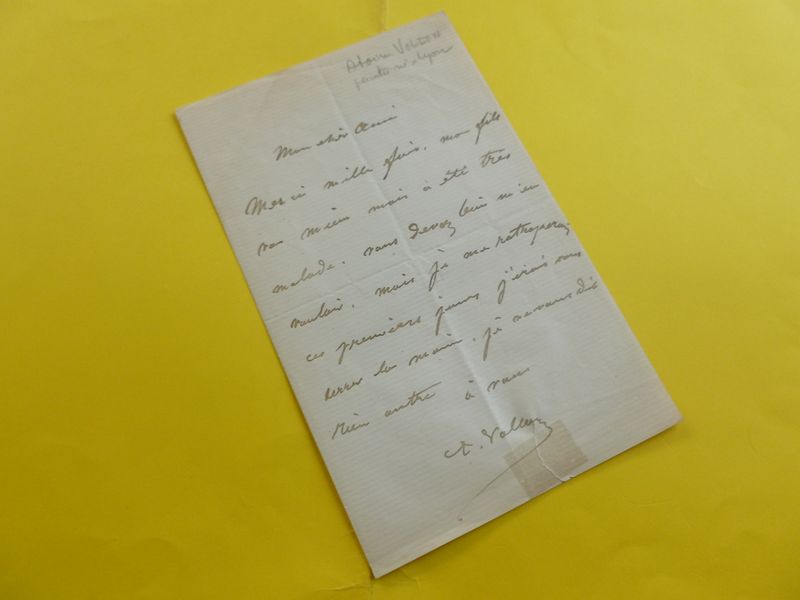 Antoine VOLLON
peintre né à Lyon
Mon cher Ami
Merci mille fois, mon fils
va mieux mais à été très
malade, vous devez bien m'en
vouloir, mais je me ratraperez
ces premiers jours j'irais vous
serrer la main, je ne vous dis
rien autre à vous
A. Vollon